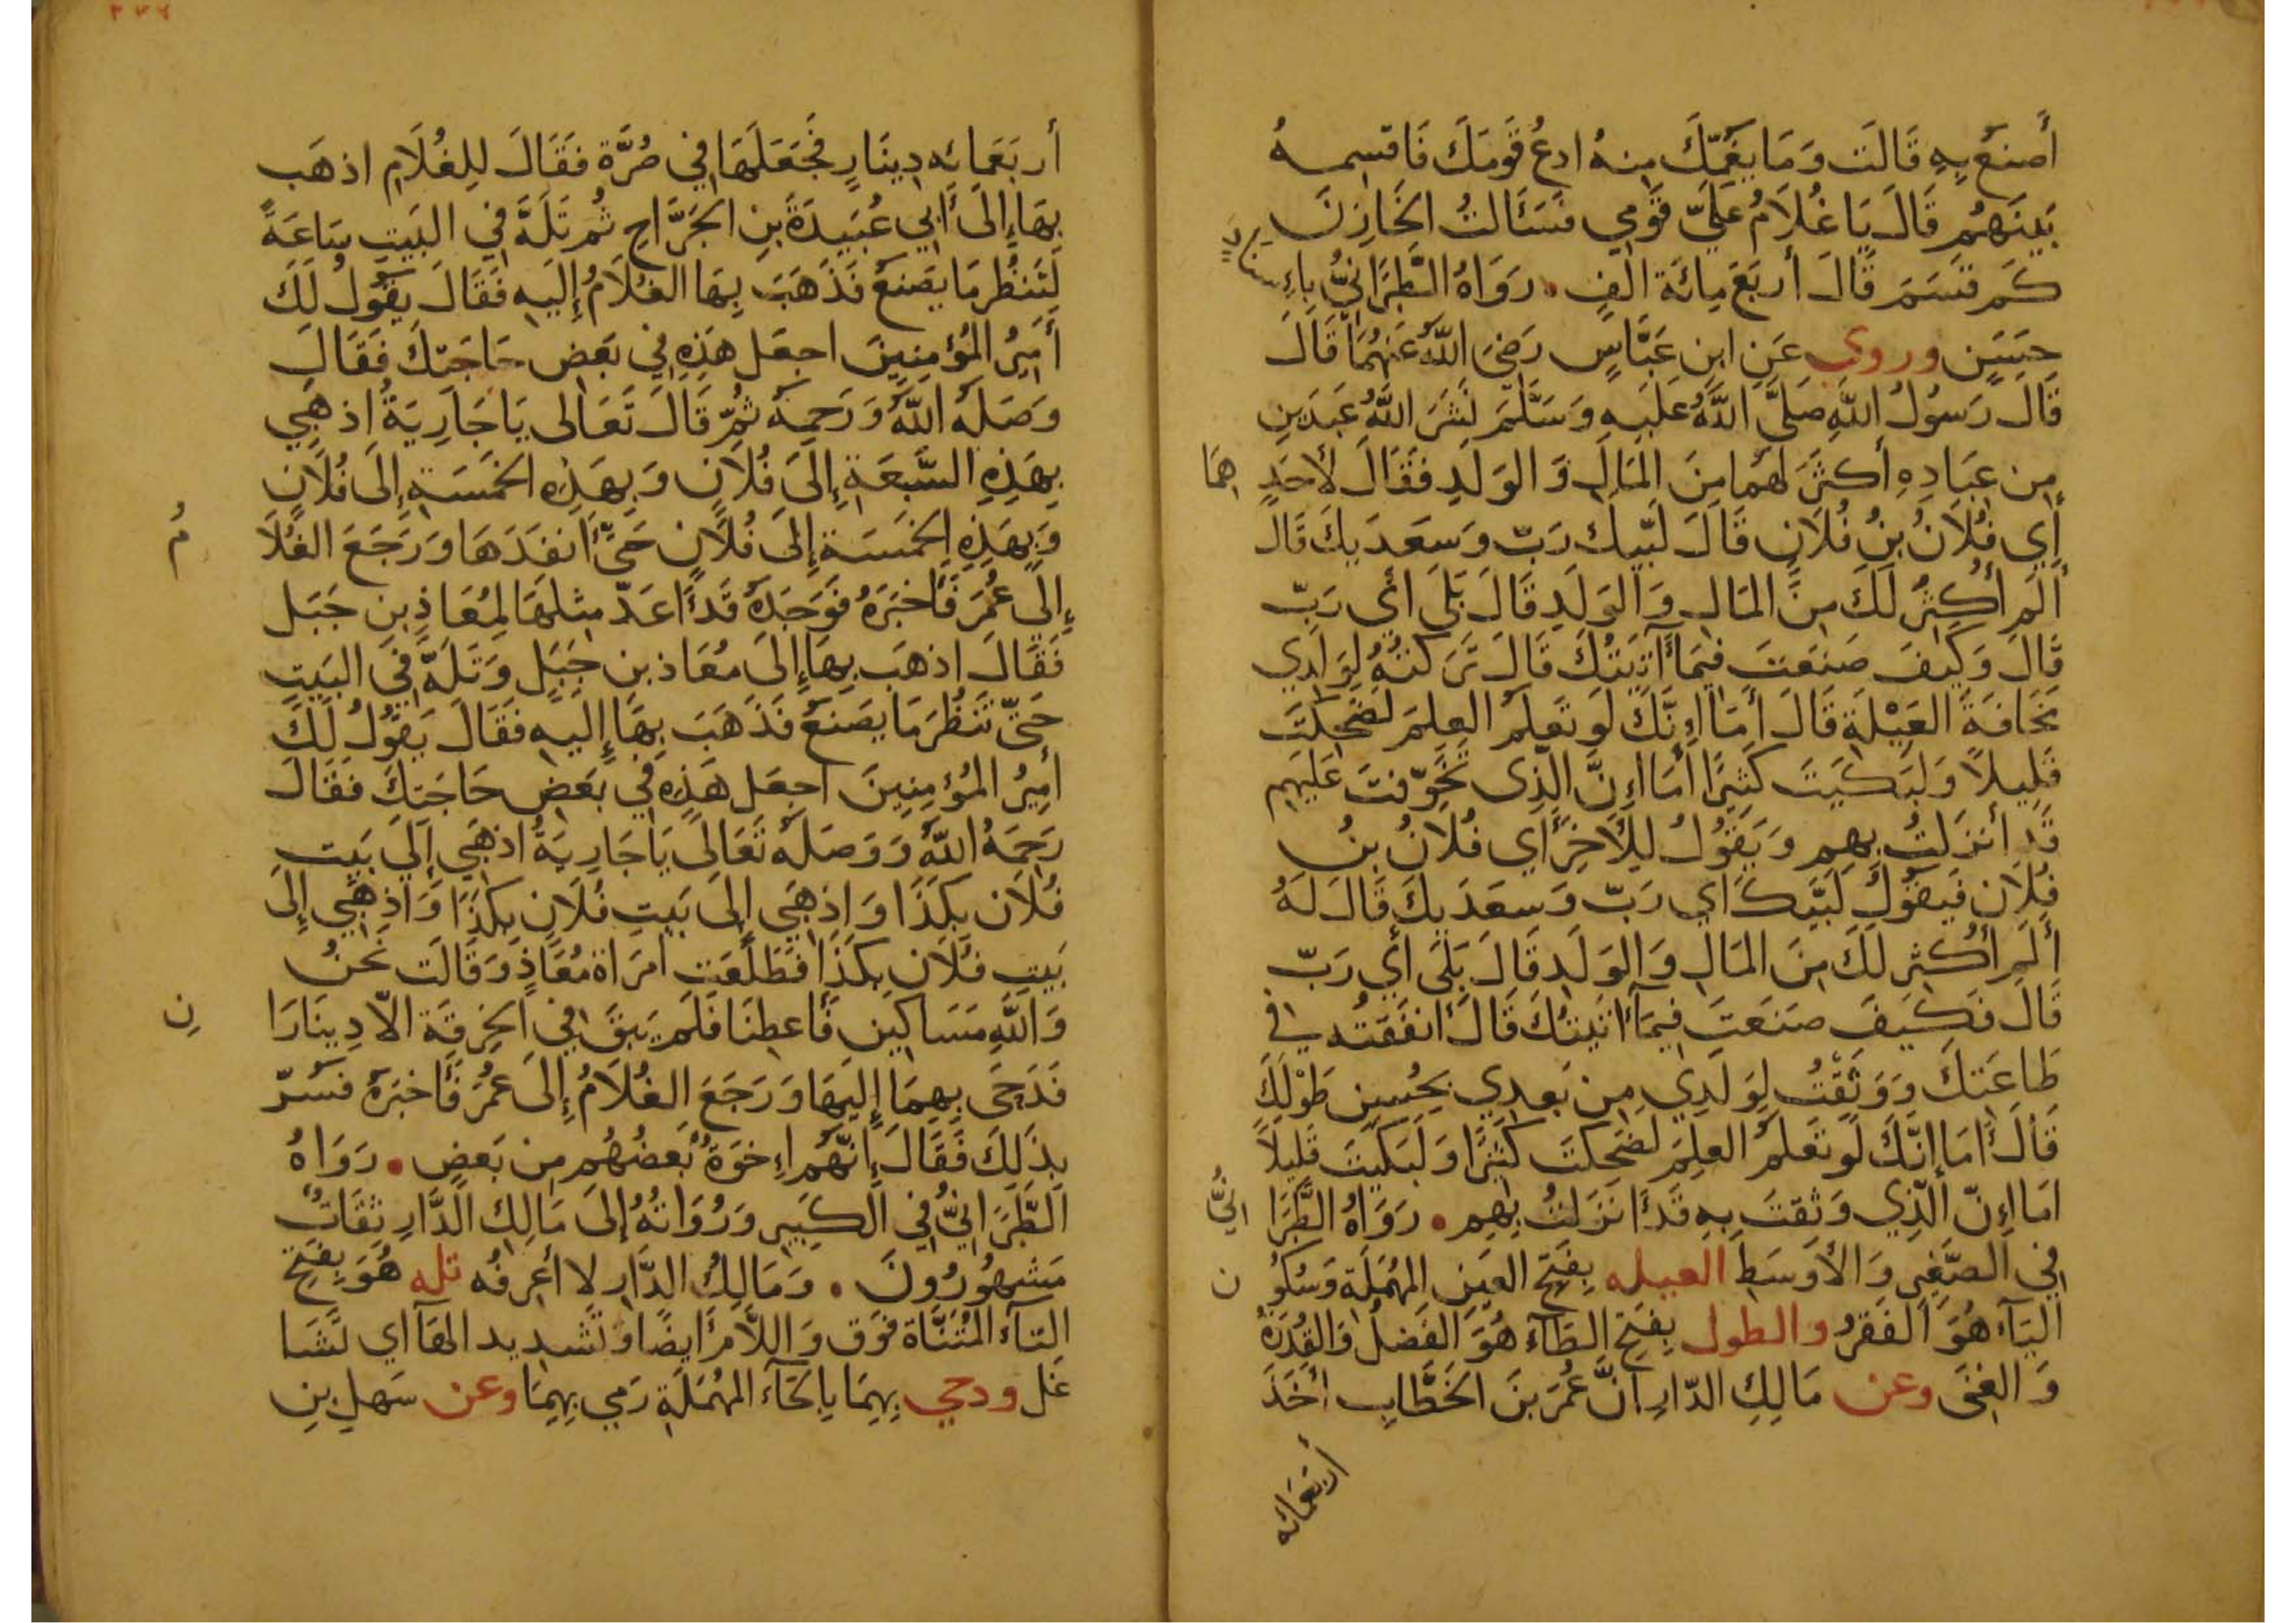 أَصنَعُ بِهِ قَالَت وَمَا يَغُمُّكَ مِنهُ ادعُ قَومَكَ فَاقسِمهُ
بَينَهُم قَالَ يَا غُلَامُ عَلَيَّ قَومِي فَسَأَلتُ الخَازِنَ
كَم قَسَمَ قَالَ أَربَعَ مِائَة أَلفٍ. رَوَاهُ الطَّبَرَانِيُّ بِإِسنَادٍ
حَسَنٍ وروي عَنِ ابنِ عَبَّاسٍ رَضِيَ اللَّهُ عَنهُمَا قَالَ
قَالَ رَسُولُ اللَّهِ صَلَّى اللَّهُ عَلَيهِ وَسَلَّمَ نَشَرَ اللَّهُ عَبدَينِ
مِن عِبَادِهِ أَكثَرَ لَهُمَا مِنَ المَالِ وَالوَلَدِ فَقَالَ لأَحَدِهِمَا
أَي فُلَانُ بنُ فُلَانٍ قَالَ لَبَّيكَ رَبِّ وَسَعدَيكَ قَالَ
أَلَم أُكثِر لَكَ مِنَ المَالِ وَالوَلَدِ قَالَ بَلَى أَي رَبِّ
قَالَ وَكَيفَ صَنَعتَ فِيمَا آتَيتُكَ قَالَ تَرَكتُهُ لِوَلَدِي
مَخَافَةَ العَيْلَةِ قَالَ أَمَا إِنَّكَ لَو تَعلَمُ العِلمَ لَضَحِكتَ
قَلِيلاً وَلَبَكَيتَ كَثِيرًا أَمَا إِنَّ الَّذِي تَخَوَّفتَ عَلَيهِم
قَد أَنزَلتُ بِهِم وَيَقُولُ لِلآخَرِ أَي فُلَانُ بنُ
فُلَانٍ فَيَقُولُ لَبَّيكَ أَي رَبِّ وَسَعدَيكَ قَالَ لَهُ
أَلَم أُكثِر لَكَ مِنَ المَالِ وَالوَلَدِ قَالَ بَلَى أَي رَبِّ
قَالَ فَكَيفَ صَنَعتَ فِيمَا آتَيتُكَ قَالَ أَنفَقتُه في
طَاعَتِكَ وَوَثِقْتُ لِوَلَدِي مِن بَعدِي بِحُسنِ طَوْلِكَ
قَالَ أَمَا إِنَّكَ لَو تَعلَمُ العِلمَ لَضَحِكتَ كَثِيرًا وَلَبَكَيتَ قَلِيلاً
امَا إِنَّ الَّذِي وَثِقتَ بِهِ قَد أَنزَلتُ بِهِم. رَوَاهُ الطَّبَرَانِيُّ
فِي الصَّغِيرِ وَالأَوسَطِ العيله بِفَتحِ العَينِ المُهمَلَةِ وَسُكُونِ
اليَاءِ هُوَ الفَقرُ والطول بِفَتحِ الطَّاءِ هُوَ الفَضلُ وَالقُدرَةُ
وَالغِنَى وعن مَالِكِ الدَّارِ أَنَّ عُمَرَ بنَ الخَطَّابِ أَخَذَ
أربعمائه
أَربَعَمائه دِينَارٍ فَجَعَلَهَا فِي صُرَّة فَقَالَ لِلغُلَامِ اذهَب
بِهَا إِلَى أَبِي عُبَيدَةَ بنِ الجَرَّاحِ ثُم تَلَهَّ فِي البَيتِ سَاعَةً
لِتَنظُر مَا يَصنَعُ فَذَهَبَ بِهَا الغُلَامُ إِلَيهِ فَقَالَ يَقُولُ لَكَ
أَمِيرُ المُؤمِنِينَ اجعَل هَذِهِ فِي بَعضِ حَاجَتِكَ فَقَالَ
وَصَلَهُ اللَّهُ وَرَحِمَهُ ثُمَّ قَالَ تَعَالَى يَا جَارِيَةُ اذهَبِي
بِهَذِهِ السَّبعَةِ إِلَى فُلَانٍ وَبِهَذِهِ الخَمسَةِ إِلَى فُلَانٍ
وَبِهَذِهِ الخَمسَةِ إِلَى فُلَانٍ حَتَّى أَنفَدَهَا وَرَجَعَ الغُلَامُ
إِلَى عُمَرَ فَأَخبَرَهُ فَوَجَدَهُ قَد أَعَدَّ مِثلَهَا لِمُعَاذِ بنِ جَبَل
فَقَالَ اذهَب بِهَا إِلَى مُعَاذ بنِ جَبَلٍ وَتَلَهَّ فِي البَيتِ
حَتَّى تَنظُرَ مَا يَصنَعُ فَذَهَبَ بِهَا إِلَيهِ فَقَالَ يَقُولُ لَكَ
أَمِيرُ المُؤمِنِينَ اجعَل هَذِهِ فِي بَعضِ حَاجَتِكَ فَقَالَ
رَحِمَهُ اللَّهُ وَوَصَلَهُ تَعَالَى يَا جَارِيَةُ اذهَبِي إِلَى بَيتِ
فُلَان بِكَذَا وَاذهَبِي إِلَى بَيتِ فُلَانٍ بِكَذَا وَاذهَبِي إِلَى
بَيتِ فُلَانٍ بِكَذَا فَطَلَعَتِ امرَأة مُعَاذٍ وَقَالَت نَحنُ
وَاللَّهِ مَسَاكِين فَأَعطِنَا فَلَم يَبقَ فِي الخِرقَة الا دِينَارَانِ
فَدَحَى بِهِمَا إِلَيهَا وَرَجَعَ الغُلَامُ إِلَى عُمَرَ فَأَخبَرَهُ فَسُرَّ
بِذَلِكَ فَقَالَ إِنَّهُم إِخوَةٌ بَعضُهُم مِن بَعضٍ. رَوَاهُ
الطَّبَرَانِيُّ فِي الكَبِيرِ وَرُوَاتُهُ إِلَى مَالِكِ الدَّارِ ثِقَاتٌ
مَشهُورُونَ. وَمَالِكُ الدَّارِ لا أعرِفُه تله هُوَ بِفَتحِ
التَاءِ المُثَنَّاة فَوق وَاللَّام أَيضًا وَتَشدِيد الهَاء اي تَشَا
غَل ودحي بِهِمَا بِالحَاءِ المُهمَلَةِ رَمِي بِهِمَا وعن سَهلِ بنِ